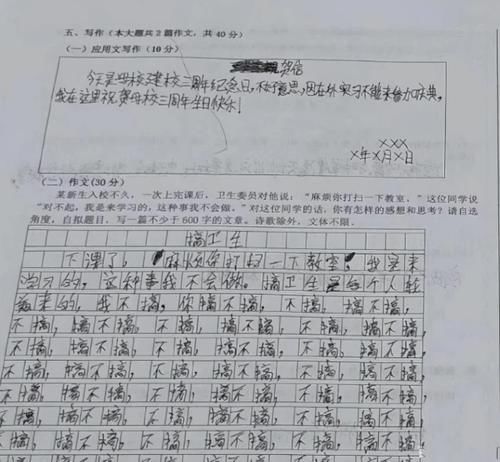 五、写作（本大题共2篇作文，共40分）
（一）应用文写作（10分）
贺信
今天是母校建校三周年纪念日，不好意思，因在外实习不能来参加庆典，
我在这里祝贺母校三周年生日快乐！
XXX
X年X月X日
（二）作文(30分)
某新生入校不久，一次上完课后，卫生委员对他说：“麻烦你打扫一下教室。”这位同学说
“对不起，我是来学习的，这种事我不会做。”对这位同学的话，你有怎样的感想和思考？请自选
角度，自拟题目，写一篇不少于600字的文章。诗歌除外，文体不限。
搞卫生
下课了！“麻烦你打扫一下教室。我是来
学习的，这种事我不会做。搞卫生是每个人轮
来的，我不搞，你搞不搞，不搞，搞不搞，
不搞，搞不搞，不搞，搞不搞，不搞，搞不搞，
不搞，搞不搞，不搞，搞不搞，不搞，搞不搞，
不搞，搞不搞，不搞，搞不搞，不搞，搞不搞，
不搞，搞不搞，不搞，搞不搞，不搞，搞不搞，
不搞，搞不搞，不搞，搞不搞，不搞，搞不搞，
不搞，搞不搞，不搞，搞不搞，不搞，搞不搞，